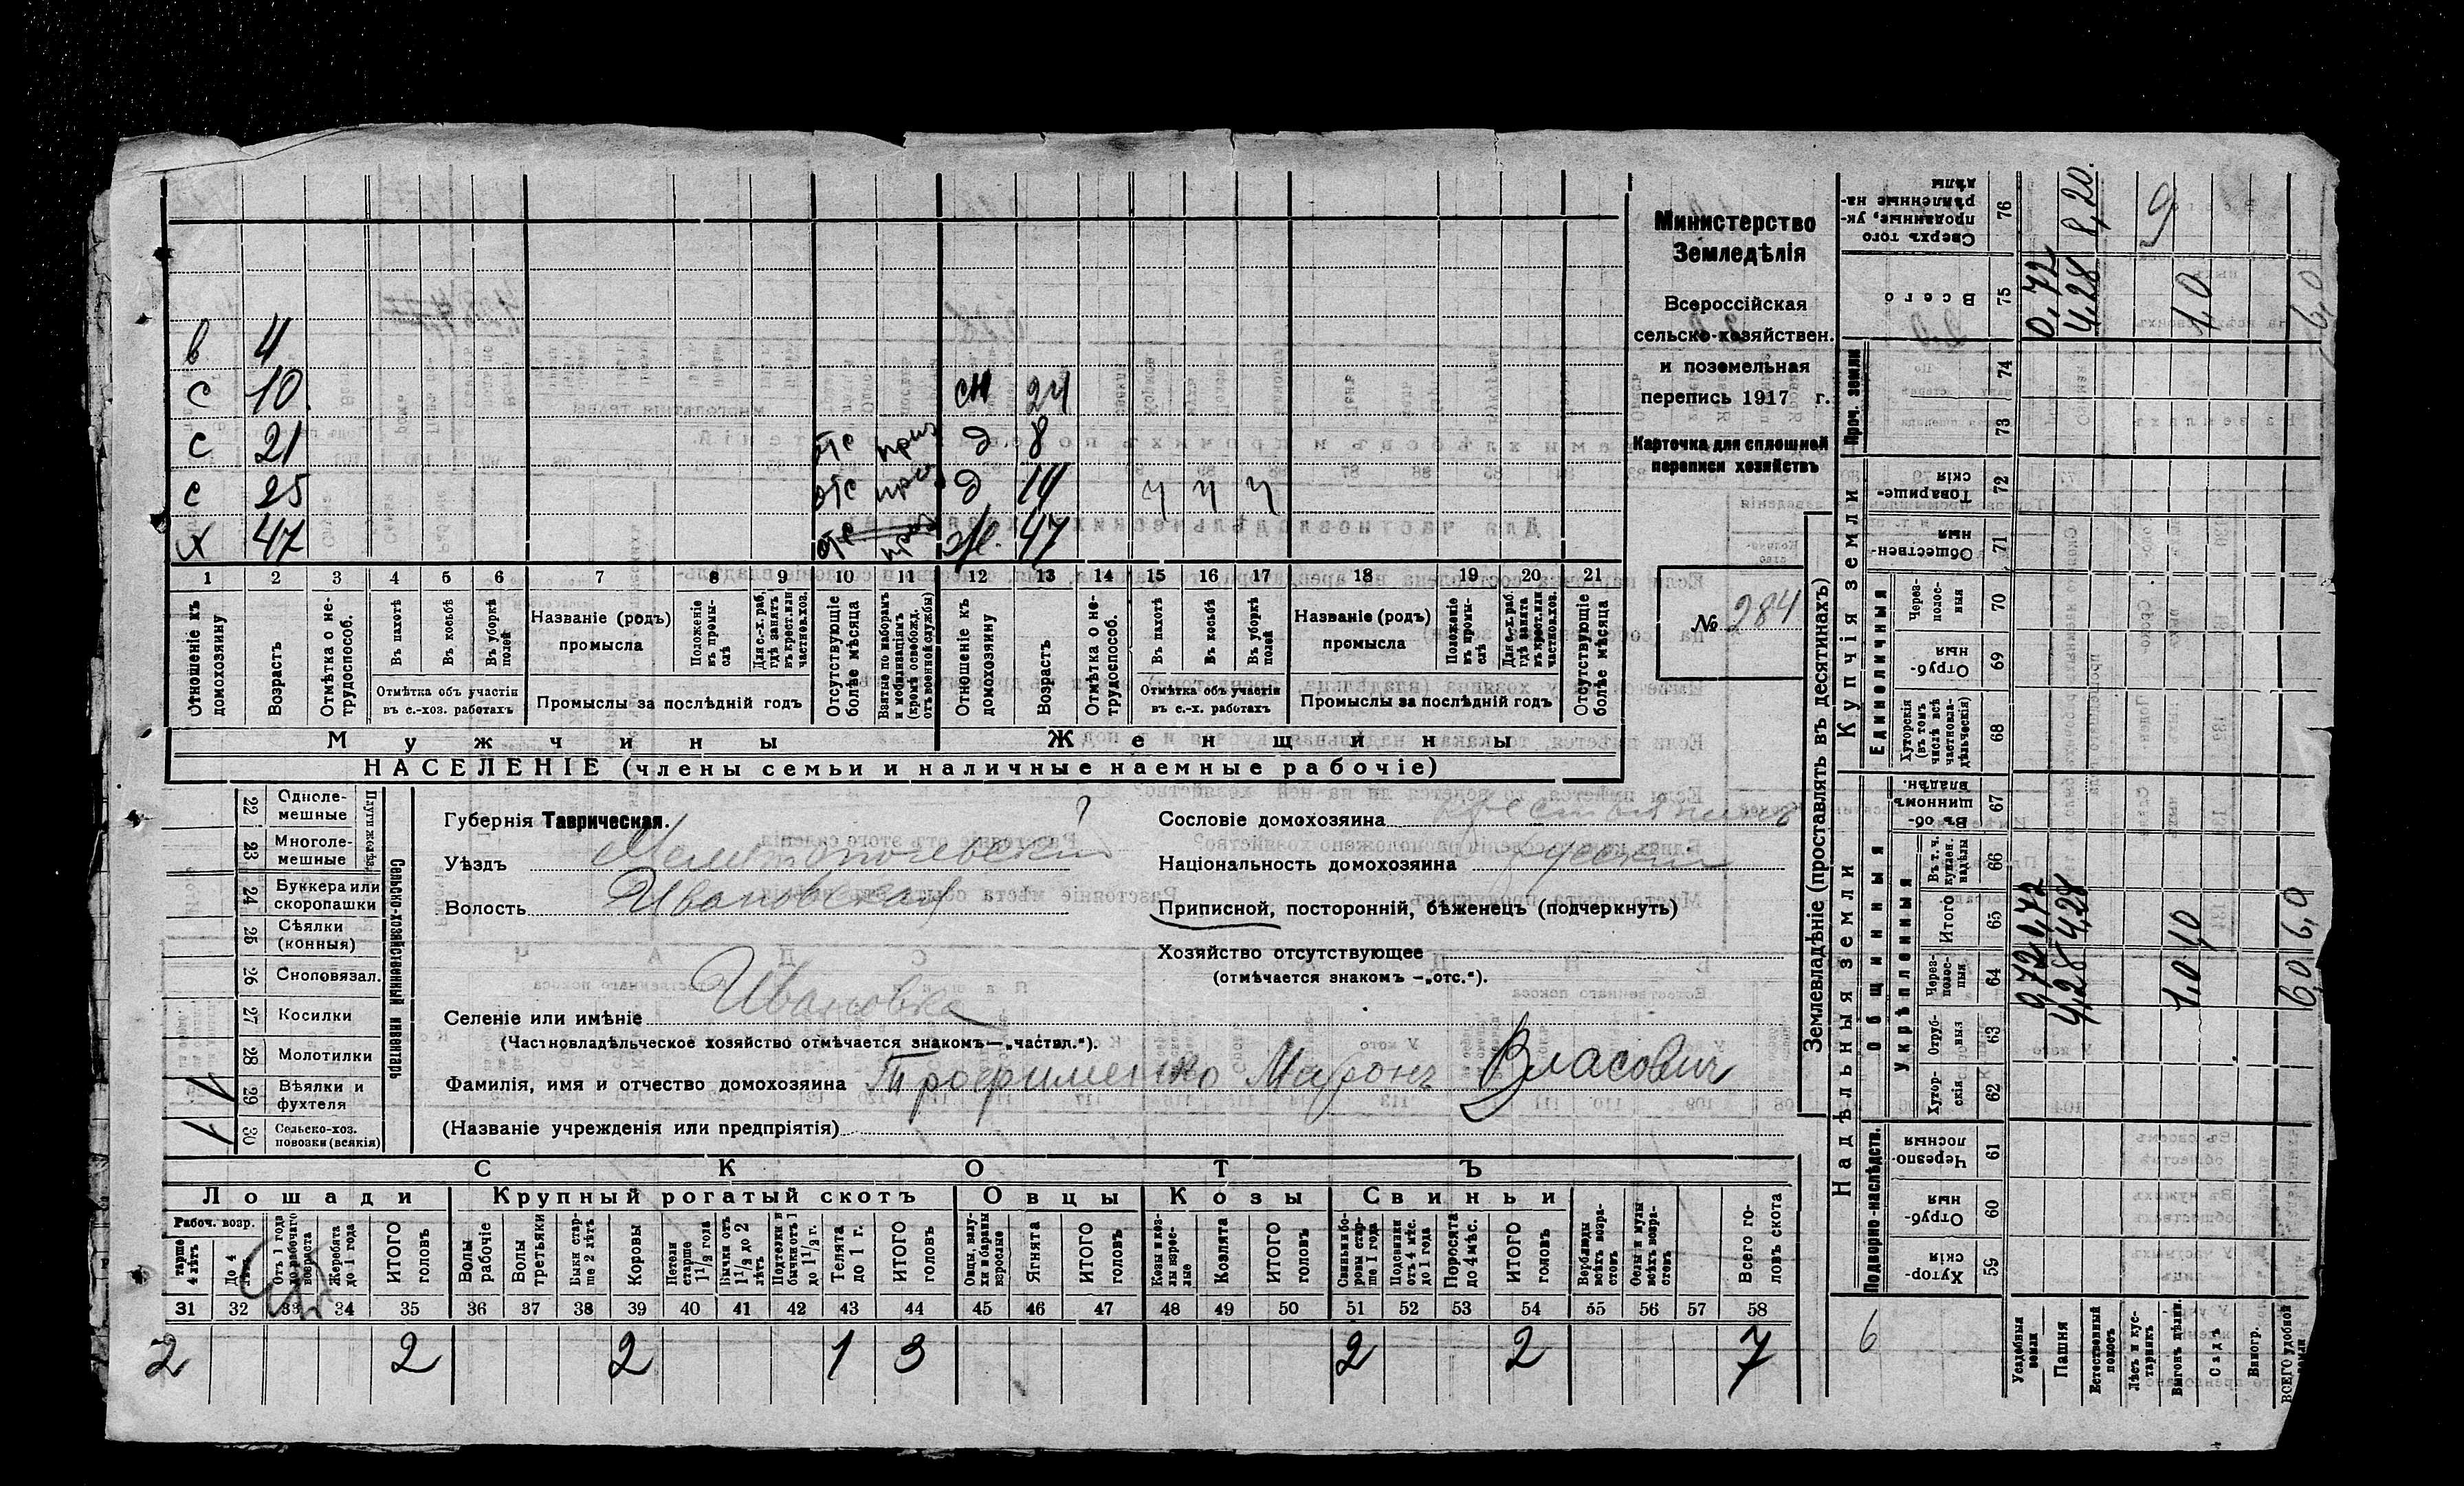 Министерство
Земледѣлія
Всероссійская
сельско-хозяйствен.
и поземельная
перепись 1917 г.
Карточка для сплошной
переписи хозяйствъ
№ 284
в 4
с 10. сн 24
с 21 отс приз д 8
с 25 отс приз д 14 ч ч ч
х 47 отс приз ж. 47
1 2 3 4 5 6 7 8 9 10 11 12 13 14 15 16 17 18 19 20 21
Отношеніе къ домохозяину
Возрастъ
Отмѣтка о не-трудоспособ.
Въ пахотѣ
Въ косьбѣ
Въ уборкѣ полей
Отмѣтка объ участіи въ с.-хоз. работахъ
Названіе (родъ) промысла
Положеніе въ промы-слѣ
Для с.-х. раб., гдѣ занятъ въ крест. или частнов. хоз.
Промыслы за послѣдній годъ
Отсутствующіе болѣе мѣсяца
Взятые по наборамъ и мобилизаціямъ (кромѣ освобожд. отъ военной службы)
Отношеніе къ домохозяину
Возрастъ
Отмѣтка о не-трудоспособ.
Въ пахотѣ
Въ косьбѣ
Въ уборкѣ полей
Отмѣтка объ участіи въ с.-х. работахъ
Названіе (родъ) промысла
Положеніе въ промы-слѣ
Для с.-х. раб. гдѣ занята въ крест. или частнов. хоз.
Промыслы за послѣдній годъ
Отсутствующіе болѣе мѣсяца
Мужчины Женщины
НАСЕЛЕНІЕ (члены семьи и наличные наемные рабочіе)
Сельско-хозяйственный инвентарь
22 Одноле-мешные
23 Многоле-мешные
24 Буккера или скоропашки
25 Сѣялки (конныя)
26 Сноповязал.
27 Косилки
28 Молотилки
1 29 Вѣялки и фухтеля
1 30 Сельско-хоз. повозки (всякія)
Губернія Таврическая.
Уѣздъ Мелитопольскій
Волость Ивановская
Селеніе или имѣніе Ивановка
(Частновладѣльческое хозяйство отмѣчается знакомъ—„частвл.“).
Фамилія, имя и отчество домохозяина Трофименко Миронъ Власович
(Названіе учрежденія или предпріятія)
Сословіе домохозяина крестьянинъ
Національность домохозяина русскій
Приписной, посторонній, бѣженецъ (подчеркнуть)
Хозяйство отсутствующее
(отмѣчается знакомъ —„отс.“).
СКОТЪ
Лошади Крупный рогатый скотъ Овцы Козы Свиньи
Рабоч. возр.
тарше 4 лѣтъ
До 4 лѣтъ
Отъ 1 года до рабочаго возраста
Жеребята до 1 года
ИТОГО головъ
Волы рабочіе
Волы третьяки
Быки стар-ше 2 лѣтъ
Коровы
Нетели старше 1½ года
Бычки отъ 1½ до 2 лѣтъ
Подтелки и бычки отъ 1 до 1½ г.
Телята до 1 г.
ИТОГО головъ
Овцы, валу-хи и бараны взрослые
Ягнята
ИТОГО головъ
Козы и коз-лы взрос-лые
Козлята
ИТОГО головъ
Свиньи и бо-ровы стар-ше 1 года
Подсвинки отъ 4 мѣс. до 1 года
Поросята до 4 мѣс.
ИТОГО головъ
Верблюды всѣхъ возра-стовъ
Ослы и мулы всѣхъ возра-стовъ
Всего го-ловъ скота
31 32 33 34 35 36 37 38 39 40 41 42 43 44 45 46 47 48 49 50 51 52 53 54 55 56 57 58
2 2 2 1 3 2 2 7
Землевладѣніе (проставлять въ десятинахъ)
Надѣльныя земли Купчія земли Проч. земли
Подворно-наслѣдств.
Общинныя
Укрѣпленныя
Единоличныя
Хутор-скія 59
Отруб-ныя 60
Черезпо-лосныя 61
Хутор-скія 62
Отруб-ныя 63
Через-полос-ныя 64
Итого 65
В т. ч. куплен. надѣлы 66
Въ об-щинномъ владѣн. 67
Хуторскія (въ томъ числѣ всѣ частновла-дѣльческія) 68
Отруб-ныя 69
Через-полос-ныя 70
Обществен-ныя 71
Товарище-скія 72
73
74
Всего 75
Сверхъ того проданные, ук-рѣпленные на-дѣлы 76
6
Усадебныя земли 0,72 0,72 0,72
Пашня 4,28 4,28 4,28 8,20.
Естественный покосъ
Лѣсъ и кус-тарникъ 9
Выгонъ цѣлин. 1,0 1,0 1,0
Садъ
Виногр.
ВСЕГО удобной земли 6,0 6,0 6,0